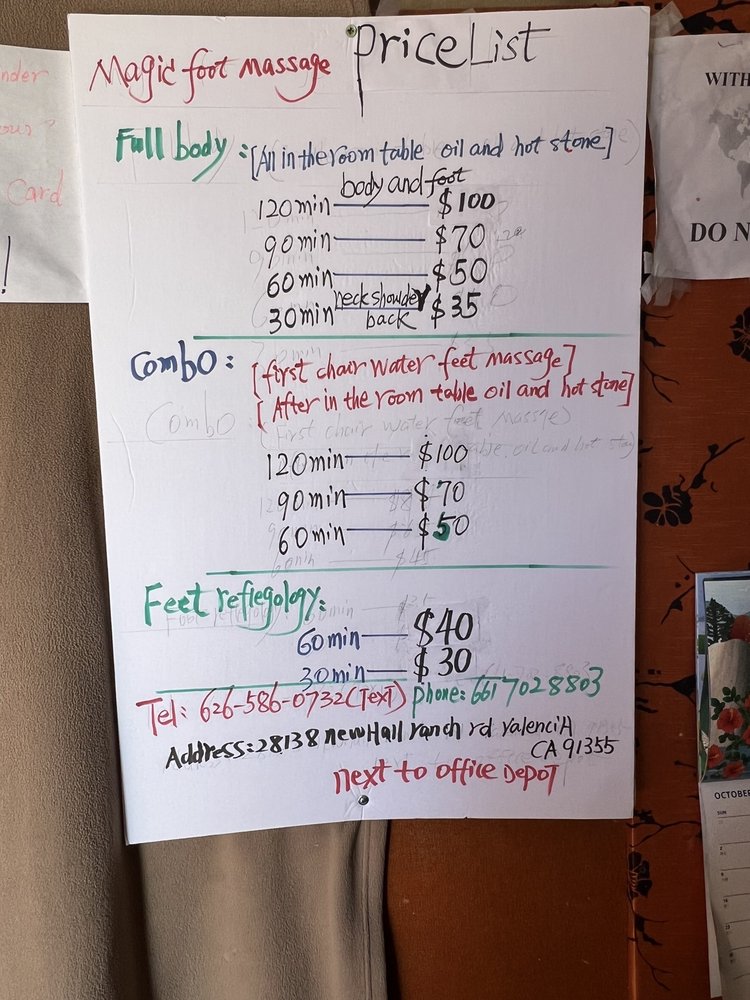 Magic foot massage Price List
Full body : [All in the room table oil and hot stone]
body and foot
120min $100
90min $70
60min $50
30min neck shoulder back $35
Combo : [first chair water feet massage]
[After in the room table oil and hot stone]
Combo
120min $100
90min $70
60min $50
$45
Feet reflegology:
60min $40
30min $30
Tel: 626-586-0732(Text) phone: 661 702 8803
Address: 28138 newHall ranch rd valenciA
CA 91355
next to office DEPOT
nder
Card
!
WITH
DO N
OCTOBER
SUN